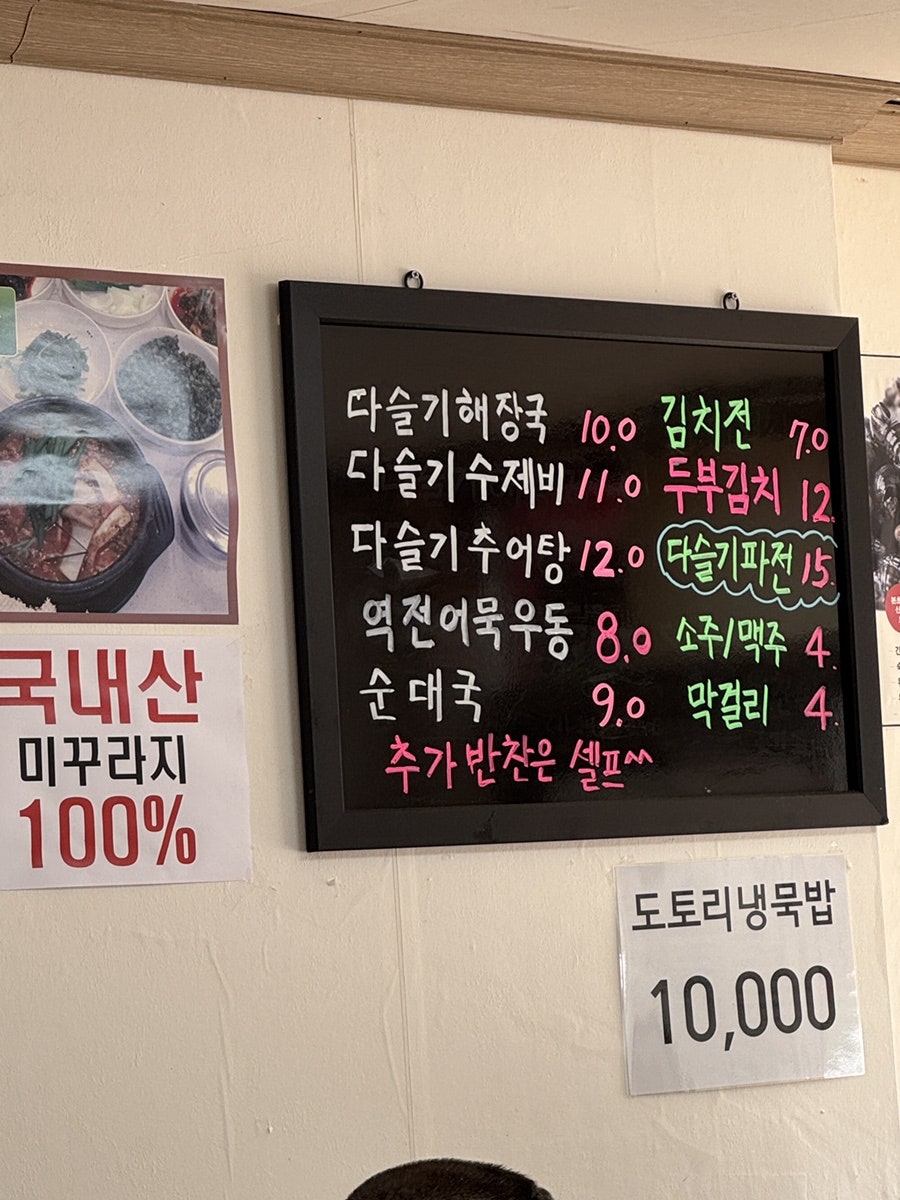 다슬기해장국 10.0
다슬기수제비 11.0
다슬기추어탕 12.0
역전어묵우동 8.0
순대국 9.0
추가반찬은 셀프^^
김치전 7.0
두부김치 12.
다슬기파전 15.
소주/맥주 4.
막걸리 4.
국내산
미꾸라지
100%
도토리냉묵밥
10,000